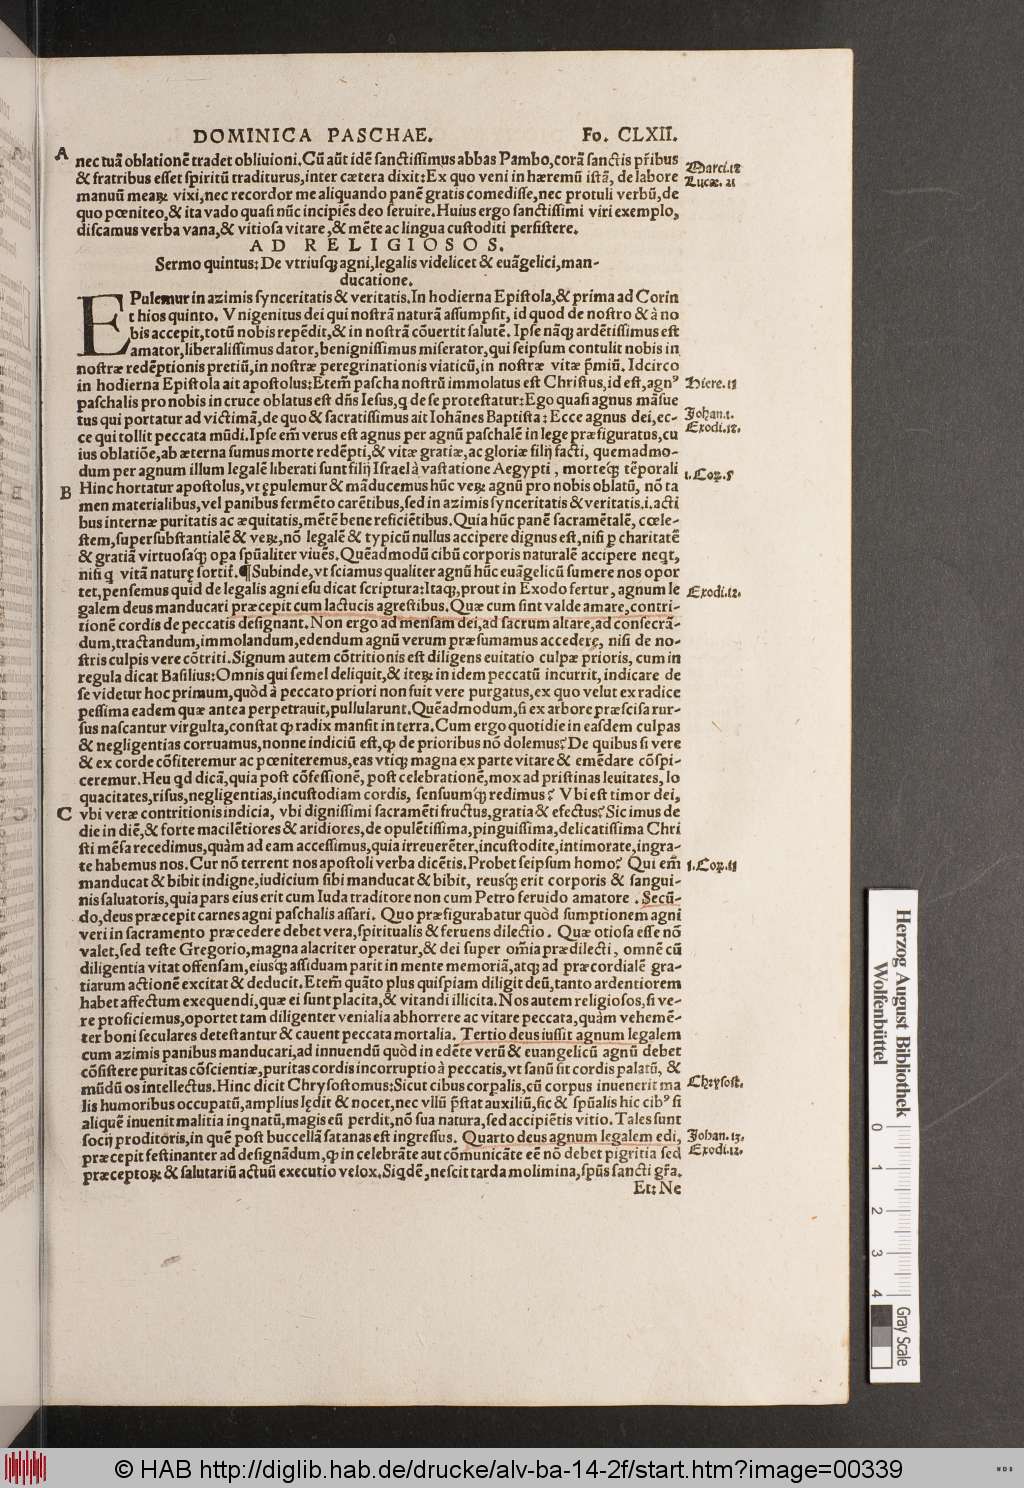 DOMINICA PASCHAE. Fo. CLXII.
A
nec tuã oblationẽ tradet obliuioni. Cũ aũt idẽ sanctissimus abbas Pambo, corã sanctis pr̃ibus
& fratribus esset spiritũ traditurus, inter cætera dixit: Ex quo veni in hæremũ istã, de labore
manuũ meaꝝ vixi, nec recordor me aliquando panẽ gratis comedisse, nec protuli verbũ, de
quo pœniteo, & ita vado quasi nũc incipiẽs deo seruire. Huius ergo sanctissimi viri exemplo,
discamus verba vana, & vitiosa vitare, & mẽte ac lingua custoditi persistere.
Marci. 12
Lucæ. 21
AD RELIGIOSOS.
Sermo quintus: De vtriusq; agni, legalis videlicet & euãgelici, man-
ducatione.
EPulemur in azimis synceritatis & veritatis. In hodierna Epistola, & prima ad Corin
thios quinto. Vnigenitus dei qui nostrã naturã assumpsit, id quod de nostro & à no
bis accepit, totũ nobis repẽdit, & in nostrã cõuertit salutẽ. Ipse nãq; ardẽtissimus est
amator, liberalissimus dator, benignissimus miserator, qui seipsum contulit nobis in
nostræ redẽptionis pretiũ, in nostræ peregrinationis viaticũ, in nostræ vitæ p̃miũ. Idcirco
in hodierna Epistola ait apostolus: Etem̃ pascha nostrũ immolatus est Christus, id est, agnꝰ
paschalis pro nobis in cruce oblatus est dñs Iesus, q de se protestatur: Ego quasi agnus mãsue
tus qui portatur ad victimã, de quo & sacratissimus ait Iohãnes Baptista: Ecce agnus dei, ec-
ce qui tollit peccata mũdi. Ipse em̃ verus est agnus per agnũ paschalẽ in lege præfiguratus, cu
ius oblatiõe, ab æterna sumus morte redẽpti, & vitæ gratiæ, ac gloriæ filij facti, quemadmo-
dum per agnum illum legalẽ liberati sunt filij Israel à vastatione Aegypti, morteq; tẽporali
Hiere. 11
Johan. 1.
Exodi. 12.
1. Coꝝ. 5
B
Hinc hortatur apostolus, vt ępulemur & mãducemus hũc veꝝ agnũ pro nobis oblatũ, nõ ta
men materialibus, vel panibus fermẽto carẽtibus, sed in azimis synceritatis & veritatis. i. acti
bus internæ puritatis ac æquitatis, mẽtẽ bene reficiẽtibus. Quia hũc panẽ sacramẽtalẽ, cœle-
stem, supersubstantialẽ & veꝝ, nõ legalẽ & typicũ nullus accipere dignus est, nisi ꝑ charitatẽ
& gratiã virtuosaq; opa spũaliter viuẽs. Quẽadmodũ cibũ corporis naturalẽ accipere neqt,
nisi q vitã naturę sortit̃. ¶ Subinde, vt sciamus qualiter agnũ hũc euãgelicũ sumere nos opor
tet, pensemus quid de legalis agni esu dicat scriptura: Itaq;, prout in Exodo fertur, agnum le
galem deus manducari præcepit cum lactucis agrestibus. Quæ cum sint valde amare, contri-
tionẽ cordis de peccatis designant. Non ergo ad mensam dei, ad sacrum altare, ad consecrã-
dum, tractandum, immolandum, edendum agnũ verum præsumamus accedere, nisi de no-
stris culpis vere cõtriti. Signum autem cõtritionis est diligens euitatio culpæ prioris, cum in
regula dicat Basilius: Omnis qui semel deliquit, & iteꝝ in idem peccatũ incurrit, indicare de
se videtur hoc primum, quòd à peccato priori non fuit vere purgatus, ex quo velut ex radice
pessima eadem quæ antea perpetrauit, pullularunt. Quẽadmodum, si ex arbore præscisa rur-
sus nascantur virgulta, constat ꝙ radix mansit in terra. Cum ergo quotidie in easdem culpas
& negligentias corruamus, nonne indiciũ est, ꝙ de prioribus nõ dolemus? De quibus si vere
& ex corde cõfiteremur ac pœniteremus, eas vtiq; magna ex parte vitare & emẽdare cõspi-
ceremur. Heu qd dicã, quia post cõfessionẽ, post celebrationẽ, mox ad pristinas leuitates, lo
quacitates, risus, negligentias, incustodiam cordis, sensuumq; redimus? Vbi est timor dei,
Exodi. 12.
C
vbi veræ contritionis indicia, vbi dignissimi sacramẽti fructus, gratia & efectus? Sic imus de
die in diẽ, & forte macilẽtiores & aridiores, de opulẽtissima, pinguissima, delicatissima Chri
sti mẽsa recedimus, quàm ad eam accessimus, quia irreuerẽter, incustodite, intimorate, ingra-
te habemus nos. Cur nõ terrent nos apostoli verba dicẽtis. Probet seipsum homo? Qui em̃
manducat & bibit indigne, iudicium sibi manducat & bibit, reusq; erit corporis & sangui-
nis saluatoris, quia pars eius erit cum Iuda traditore non cum Petro feruido amatore. Secũ-
do, deus præcepit carnes agni paschalis assari. Quo præfigurabatur quòd sumptionem agni
veri in sacramento præcedere debet vera, spiritualis & feruens dilectio. Quæ otiosa esse nõ
valet, sed teste Gregorio, magna alacriter operatur, & dei super om̃ia prædilecti, omnẽ cũ
diligentia vitat offensam, eiusq; assiduam parit in mente memoriã, atq; ad præcordialẽ gra-
tiarum actionẽ excitat & deducit. Etem̃ quãto plus quispiam diligit deũ, tanto ardentiorem
habet affectum exequendi, quæ ei sunt placita, & vitandi illicita. Nos autem religiosos, si ve-
re proficiemus, oportet tam diligenter venialia abhorrere ac vitare peccata, quàm vehemẽ-
ter boni seculares detestantur & cauent peccata mortalia. Tertio deus iussit agnum legalem
cum azimis panibus manducari, ad innuendũ quòd in edẽte verũ & euangelicũ agnũ debet
cõsistere puritas cõscientiæ, puritas cordis incorruptio à peccatis, vt sanũ sit cordis palatũ, &
mũdũ os intellectus. Hinc dicit Chrysostomus: Sicut cibus corpalis, cũ corpus inuenerit ma
lis humoribus occupatũ, amplius lędit & nocet, nec vllũ p̃stat auxiliũ, sic & spũalis hic cibꝰ si
aliquẽ inuenit malitia inqnatũ, magis eũ perdit, nõ sua natura, sed accipiẽtis vitio. Tales sunt
socij proditoris, in quẽ post buccellã satanas est ingressus. Quarto deus agnum legalem edi,
præcepit festinanter ad designãdum, ꝙ in celebrãte aut cõmunicãte eẽ nõ debet pigritia sed
præceptoꝝ & salutariũ actuũ executio velox. Siqdẽ, nescit tarda molimina, spũs sancti gr̃a.
Et: Ne
1. Coꝝ. 11
Chrysost.
Johan. 13.
Exodi. 12.
Herzog August Bibliothek
Wolfenbüttel
0
1
2
3
4
Gray Scale
© HAB http://diglib.hab.de/drucke/alv-ba-14-2f/start.htm?image=00339